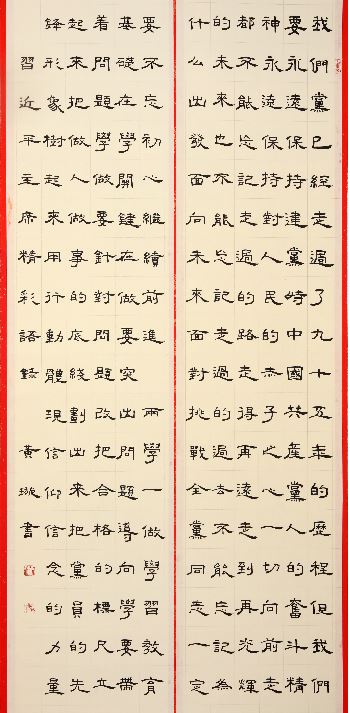 我們黨已經走過了九十五年的歷程但我們
要永遠保持建黨時中國共產黨人的奮斗精
神永遠保持對人民的赤子之心一切向前走
都不能忘記走過的路走得再遠走到再光輝
的未來也不能忘記走過的過去不能忘記為
什么出發面向未來面對挑戰全黨同志一定
要不忘初心繼續前進 兩學一做學習教育
基礎在學關鍵在做要突出問題導向學要帶
着問題學做要針對問題改把合格的標尺立
起來把做人做事的底綫劃出來把黨員的先
鋒形象樹起來用行動體現信仰信念的力量
習近平主席精彩語錄 黄璇書